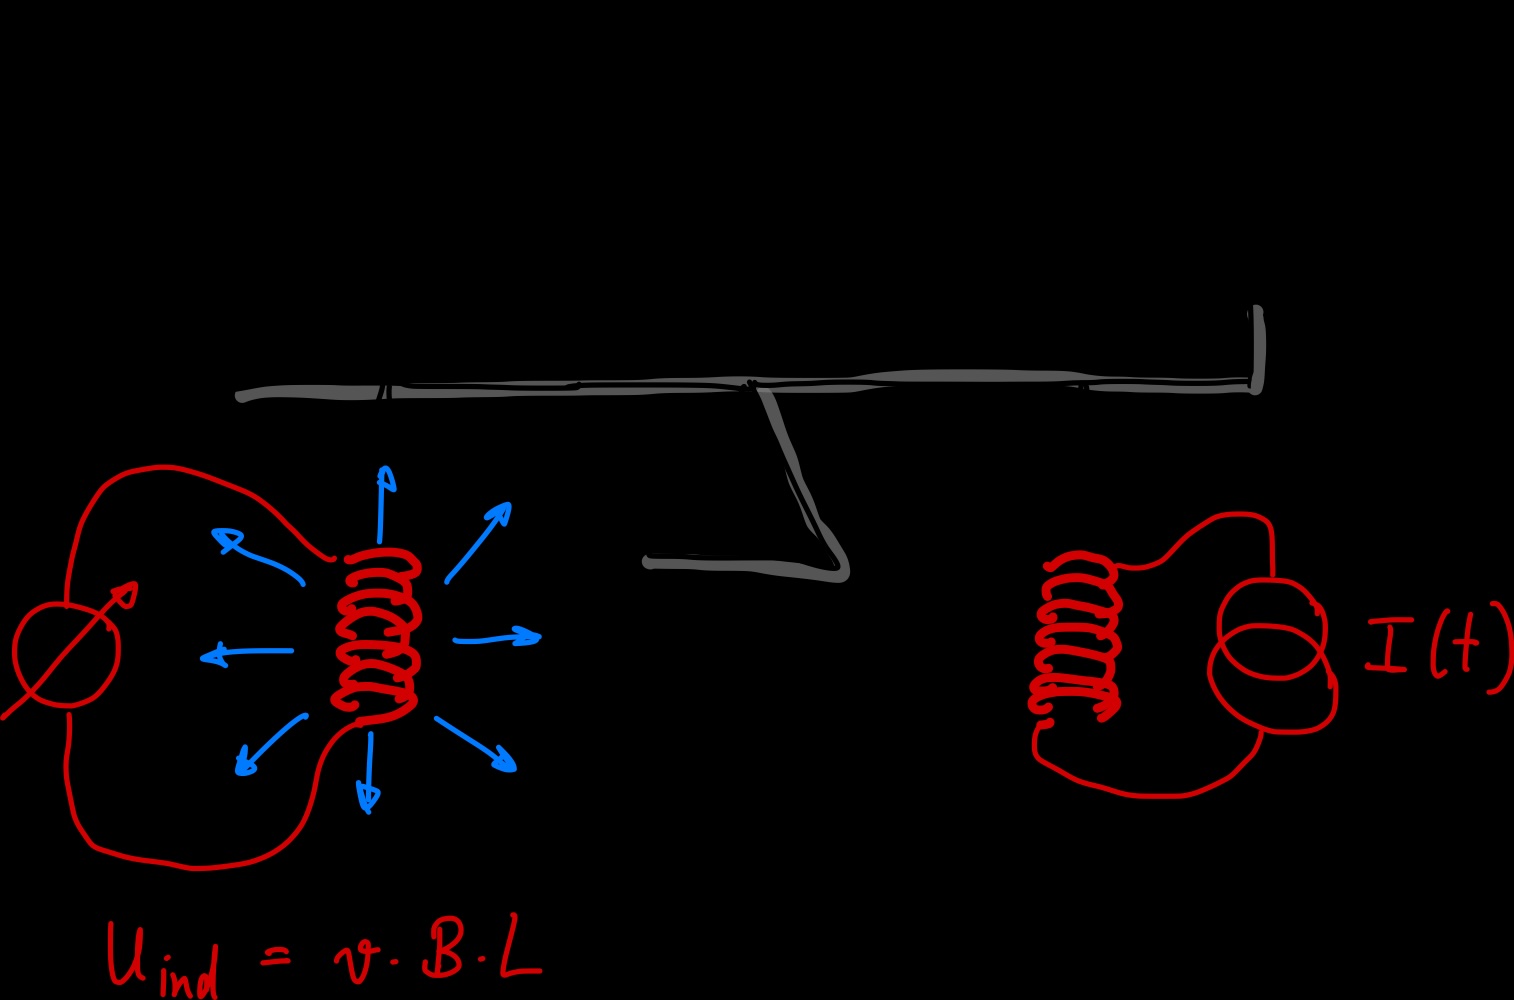 I(t)
U_ind = v · B · L